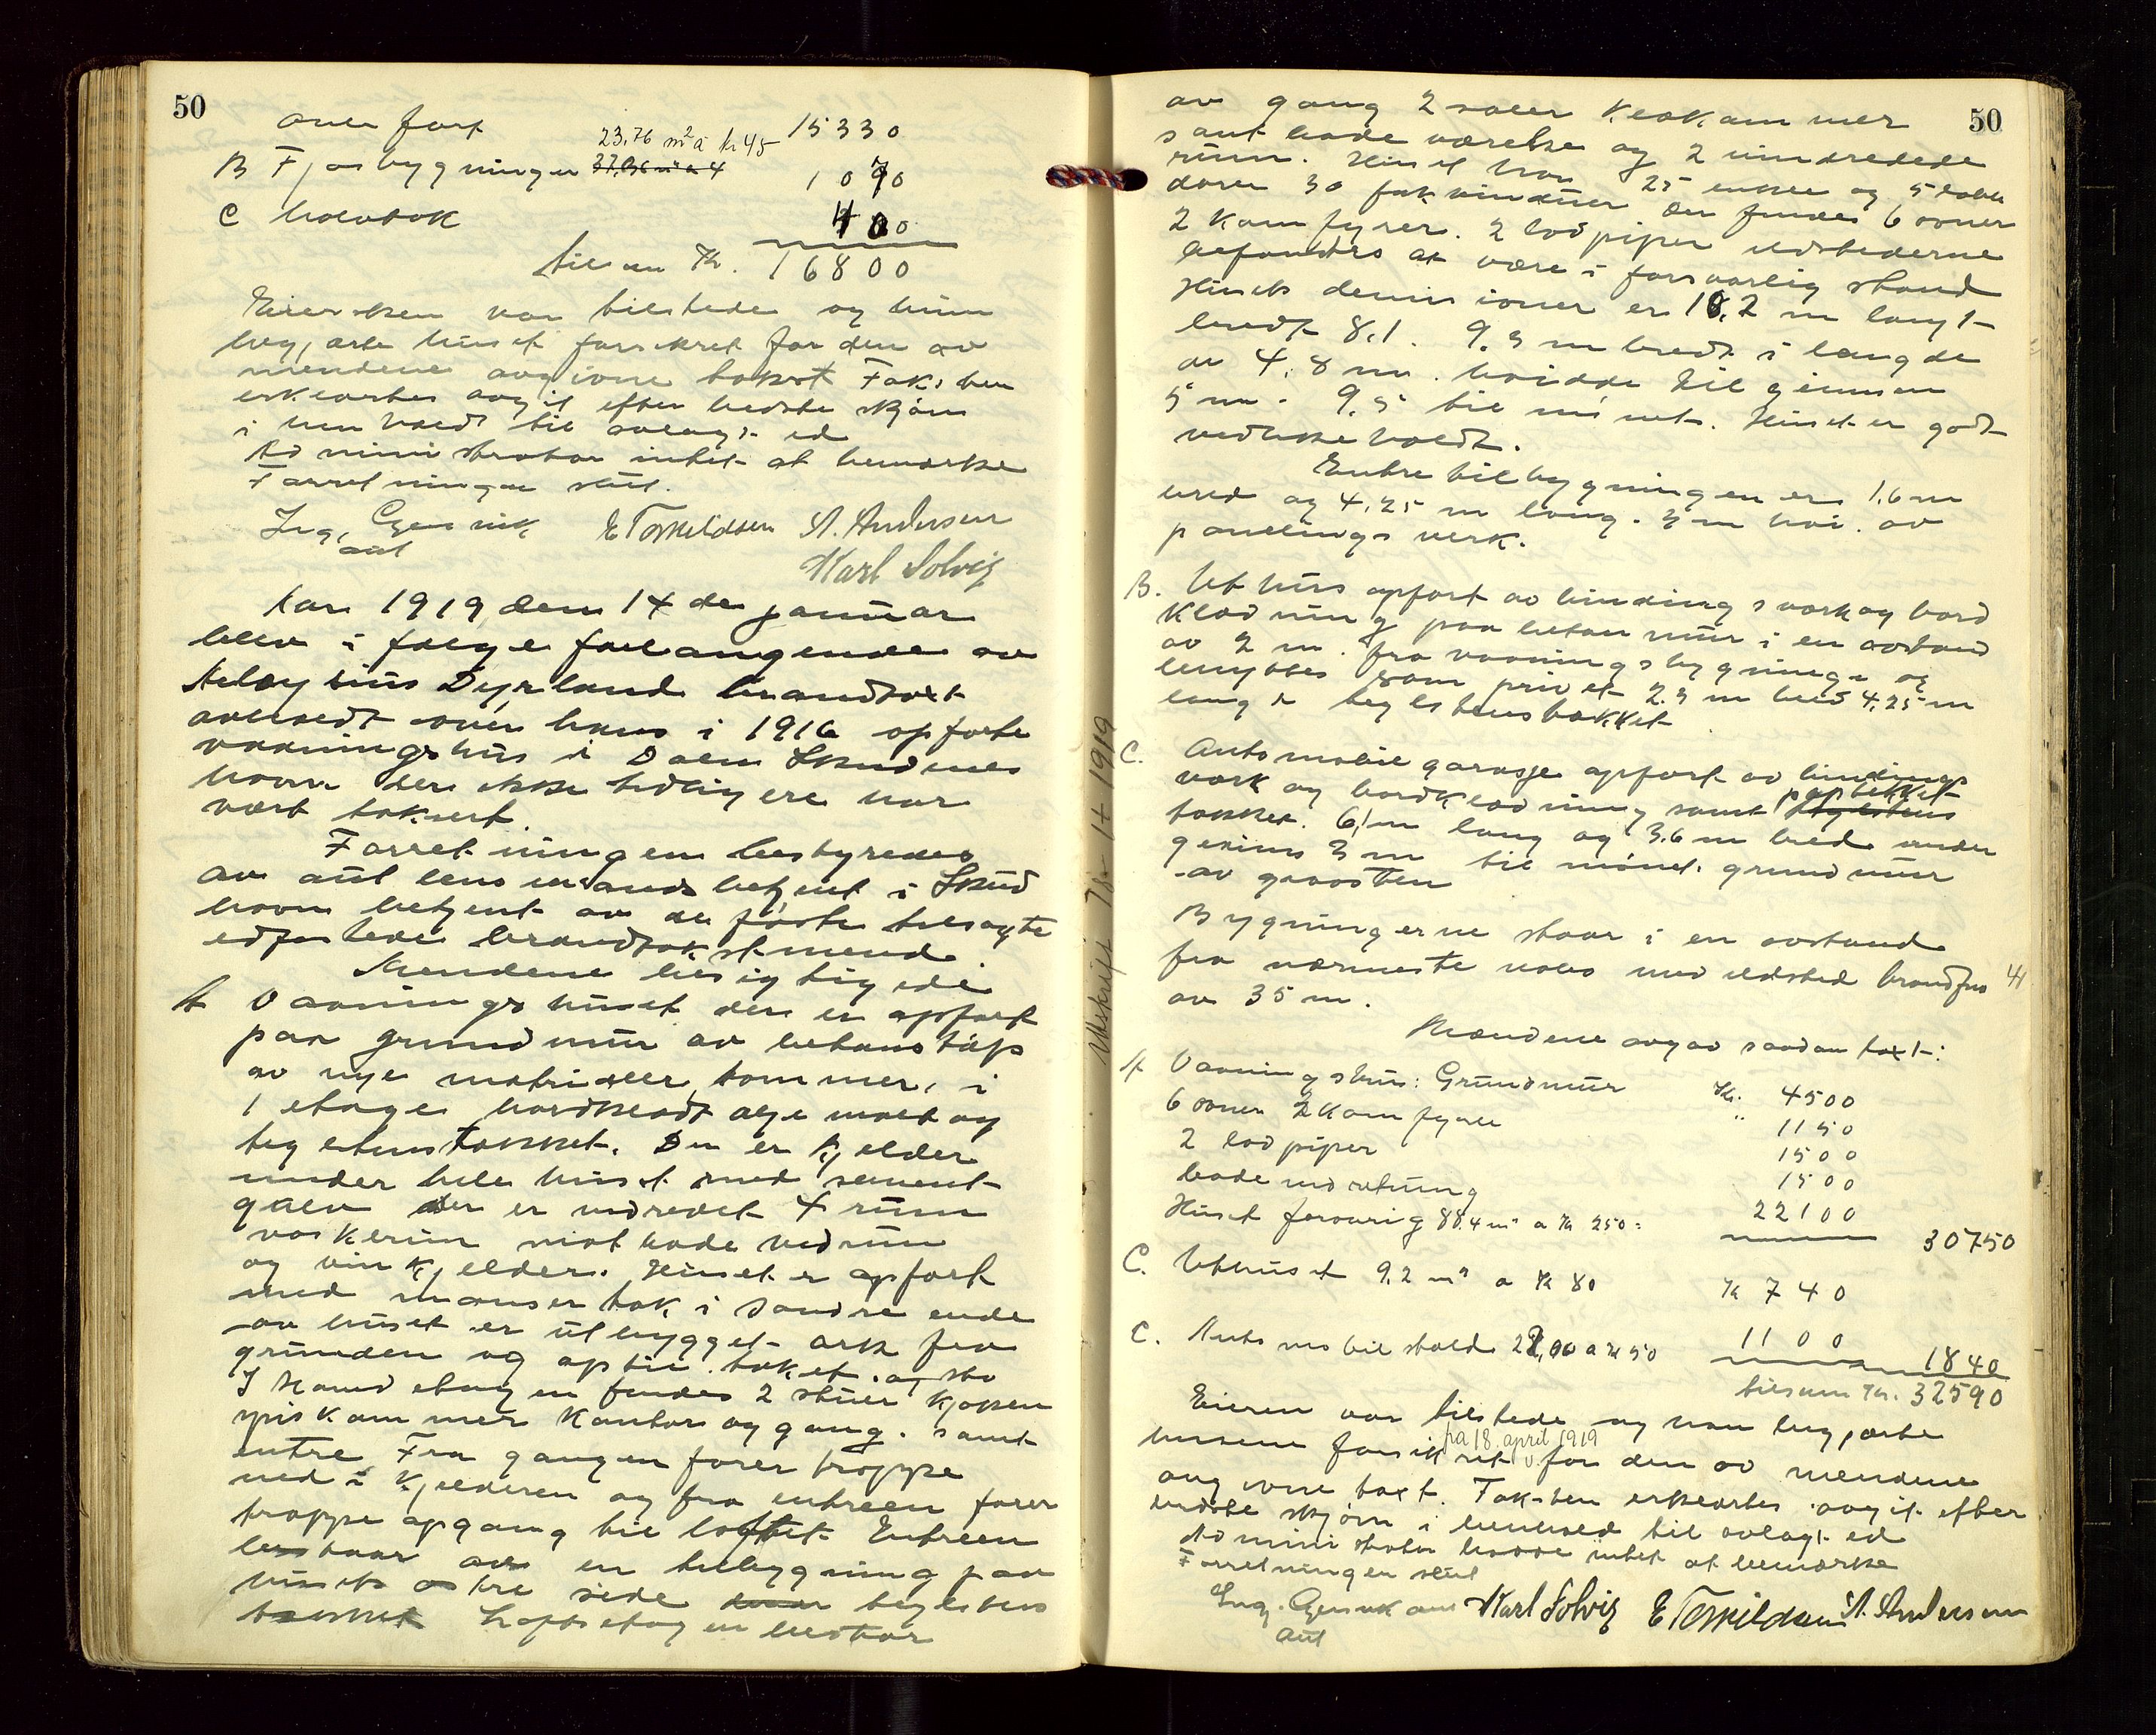 50
over ført 15330
B Fjøsbygningen 23,76 m² a kr 45 1070
37,96 m² a 4
C Halvtak 400
tilsum Kr. 16800
Eiersken var tilstede og hun
begjærte huset forsikret for den av
mendene avgivne takst Taksten
erklærtes avgit efter bedste skjøn
i henhold til avlagt ed
Administrator intet at bemærke
Forretningen slut.
E Torkildsen A. Andersen
aut
Karl Solvig
Aar 1919 den 14 de januar
blev i følge forlangende av
Dyrland brandtaxt
avholdt over hans i 1916 opførte
vaaningshus i Dalen Skudenes
havn der ikke tidligere har
vært taksert.
Forretningen bestyredes
av aut lensmandsbetjent i Skud
havn betjent av de første tilsagte
edfestede brandtakstmend.
Mendene besigtigede
A Vaaningshuset der er opført
paa grundmur av betonstøp
av nye matrialer, tømmer, i
1 etage bordklædt alje malt og
teglstenstækket. Der er kjelder
under hele huset med sement
gulv der er indredet 4 rum
vaskerum matbode vedrum
og vinkjelder. Huset er opført
med mansertak i søndre ende
av huset er utbygget ark fra
grunden og op til taket.
I Hovedetagen findes 2 stuer kjøkken
spiskammer kontor og gang. samt
entre Fra gangen fører trappe
ned i kjelderen og fra entreen fører
trappe opgang til loftet Entreen
bestaar av en tilbygning paa
husets østre side teglstens
tækket Loftsetagen bestaar
Utskrift 18-11 1919
50
av gang 2 saler klækammer
samt bade værelse og 2 uindredede
rum. Huset har 25 enkle og 5 doble
dører 30 fak vinduer der findes 6 ovner
2 kamfyrer. 2 lodpiper ildstederne
befandtes at være i forsvarlig stand
Husets demisioner er 10,2 m langt
bredt 8,1. 9,3 m bredt i længde
av 4,8 m. høidde til gesimsen
5 m. 9,5 til mønet. Huset er godt
vedlikeholdt.
Entre tilbygningen er 1,6 m
bred og 4,25 m lang. 3 m høi. av
panelings verk.
B. Uthus opført av bindingsværk og bord
klædning paa beton mur i en avstand
av 2 m. fra vaaningsbygningen og
benyttes som privet 2.3 m bred 4,25 m
lang teglstenstækket
C. Automobil garasje opført av bindings
værk og bordklædning samt paptækket teglstens
tækket. 6,1 m lang og 3.6 m bred under
gesims 3 m til mønet. grundmur
av graasten
Bygningerne staar i en avstand
fra nærmeste nabo med ildsted brandfri
av 35 m.
Mændene avgav saadan taxt:
A Vaaningshus: Grundmur Kr. 4500
6 ovner 2 kamfyrer " 1150
2 lodpiper 1500
bade indretning 1500
Huset forøvrig 88.4 m² a kr 250: 22100
30750
C. Uthuset 9.2 m² a kr 80 kr 740
C. Automobil stald 22,00 a kr 50 1100
1840
tilsum Kr. 32590
Eieren var tilstede og han begjærte
husene forsikret pa 18. april 1919 for den av mendene
avgivne taxt. Taksten erklærtes avgit efter
bedste skjøn i henhold til avlagt ed
Administrator hadde intet at bemærke
Forretningen slut
aut
Karl Solvig E Torkildsen A. Andersen